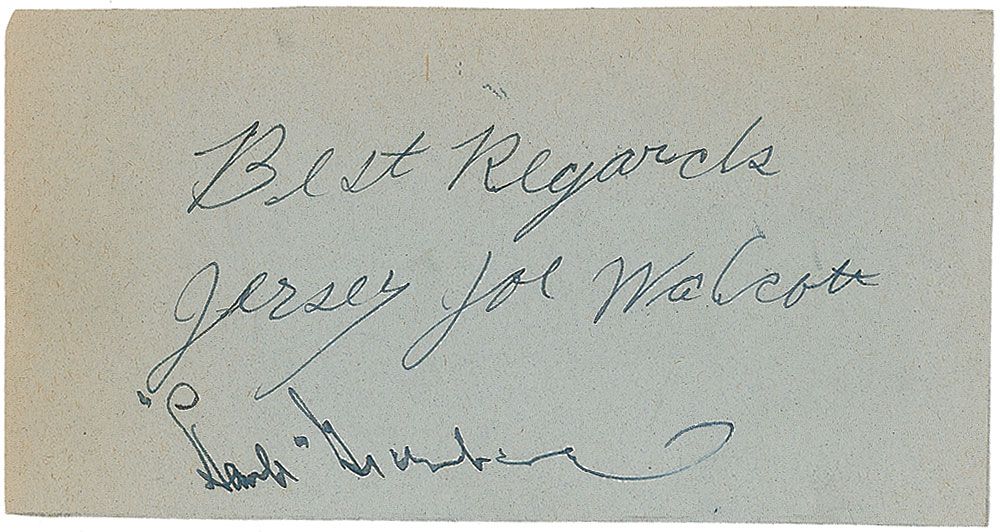 Best Regards
Jersey Joe Walcott
"Hank"